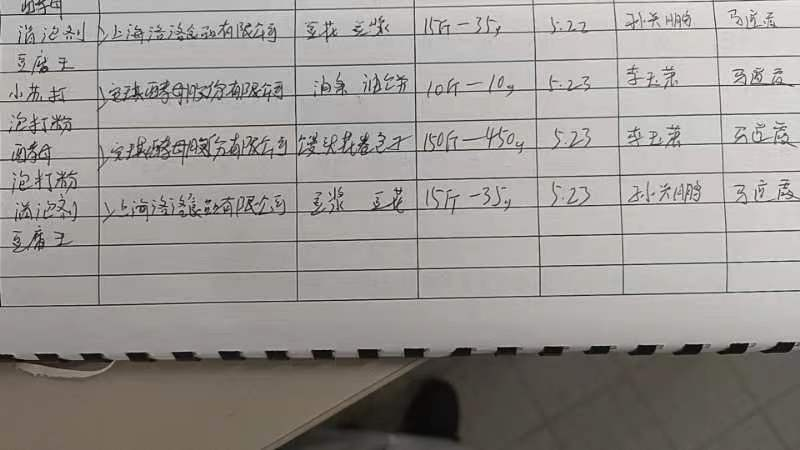 酵母
消泡剂 上海洛洛食品有限公司 豆花 豆浆 15斤-35g 5.22 孙兴鹏 马运霞
豆腐王
小苏打 安琪酵母股份有限公司 油条 油饼 10斤-10g 5.23 李玉荣 马运霞
泡打粉
酵母 安琪酵母股份有限公司 馒头花卷包子 150斤-450g 5.23 李玉荣 马运霞
泡打粉
消泡剂 上海洛洛食品有限公司 豆浆 豆花 15斤-35g 5.23 孙兴鹏 马运霞
豆腐王